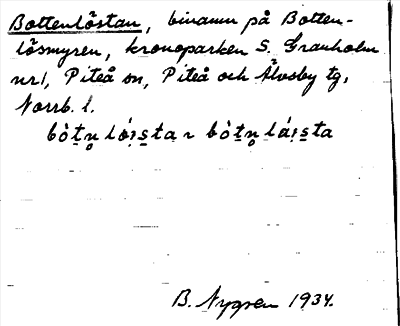 Bottenlöstan, binamn på Botten-
lösmyren, kronoparken S. Granholm
nr 1, Piteå sn, Piteå och Älvsby tg,
Norrb. l.
bòt̠n̥ ló̤ı̣s̠ta ~ bòt̠n̥ láı̣s̠ta
B. Nygren 1934.